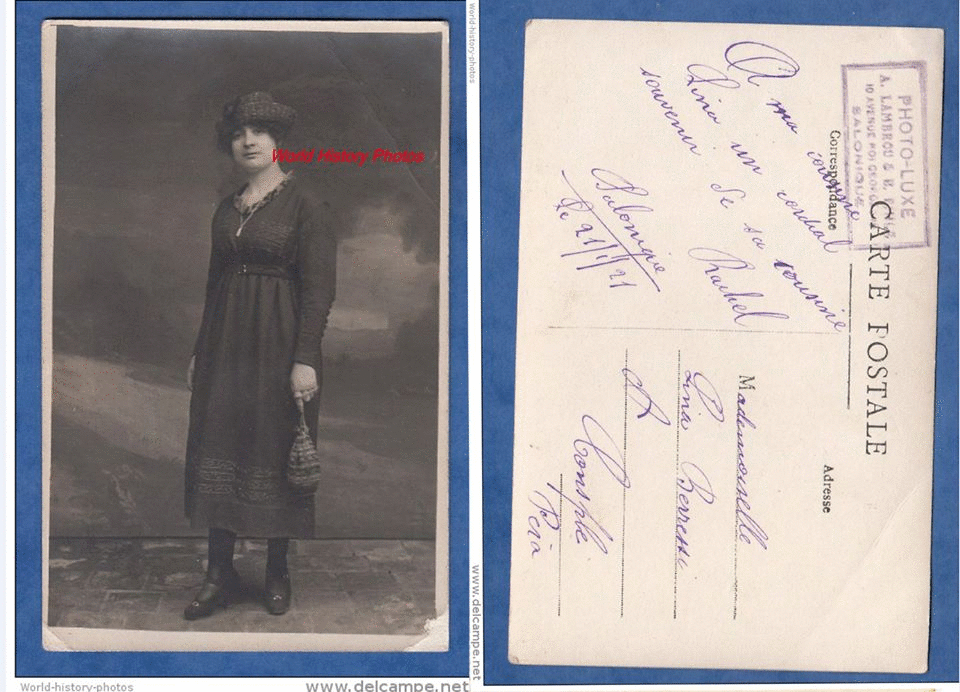 World-history-photos
World History Photos
World-history-photos
www.delcampe.net
World-history-photos
www.delcampe.net
PHOTO-LUXE
A. LAMBROU & E.
10 AVENUE ROI GEORGE
SALONIQUE
CARTE POSTALE
Correspondance
Adresse
A ma cousine
Lina un cordial
souvenir de sa cousine
Rachel
Salonique
le 21/1/21
Mademoiselle
Lina
A
Constple
Pera